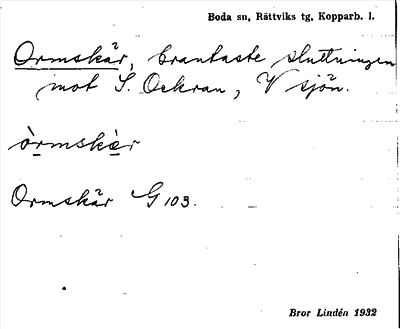 Boda sn, Rättviks tg, Kopparb. l.
Ormskär, brantaste sluttningen
mot S. Ockran, V sjön.
òrmskèr
Ormskär G 103.
Bror Lindén 1932